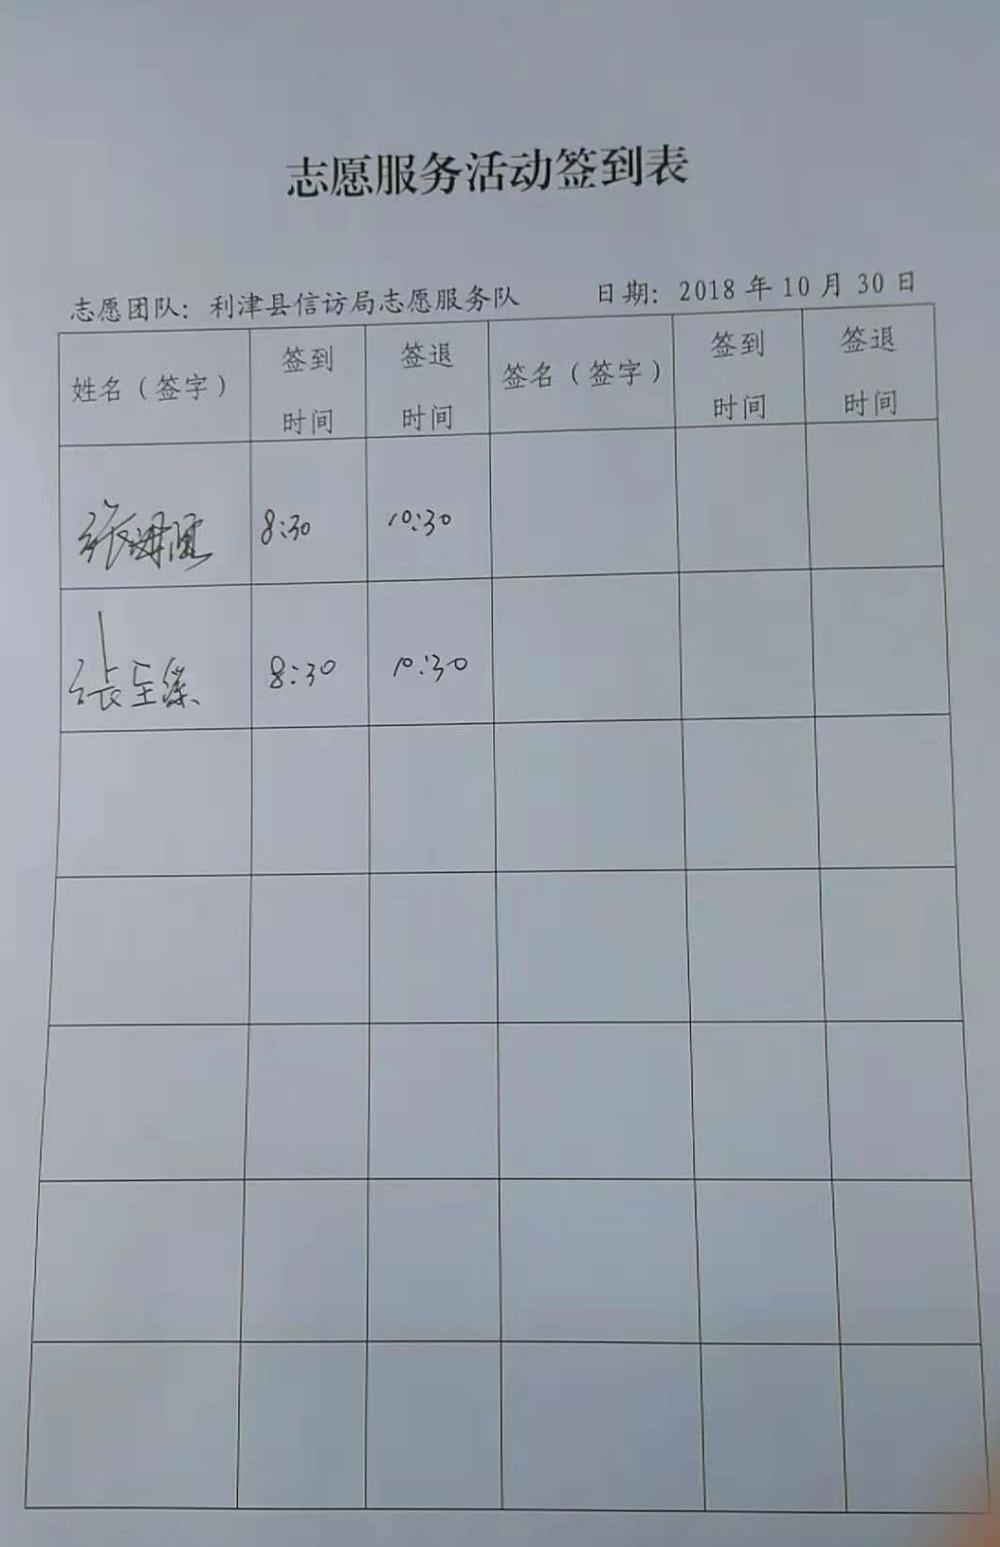 志愿服务活动签到表
志愿团队：利津县信访局志愿服务队 日期：2018 年 10 月 30 日
姓名（签字） 签到时间 签退时间 签名（签字） 签到时间 签退时间
张 8:30 10:30
张 8:30 10:30